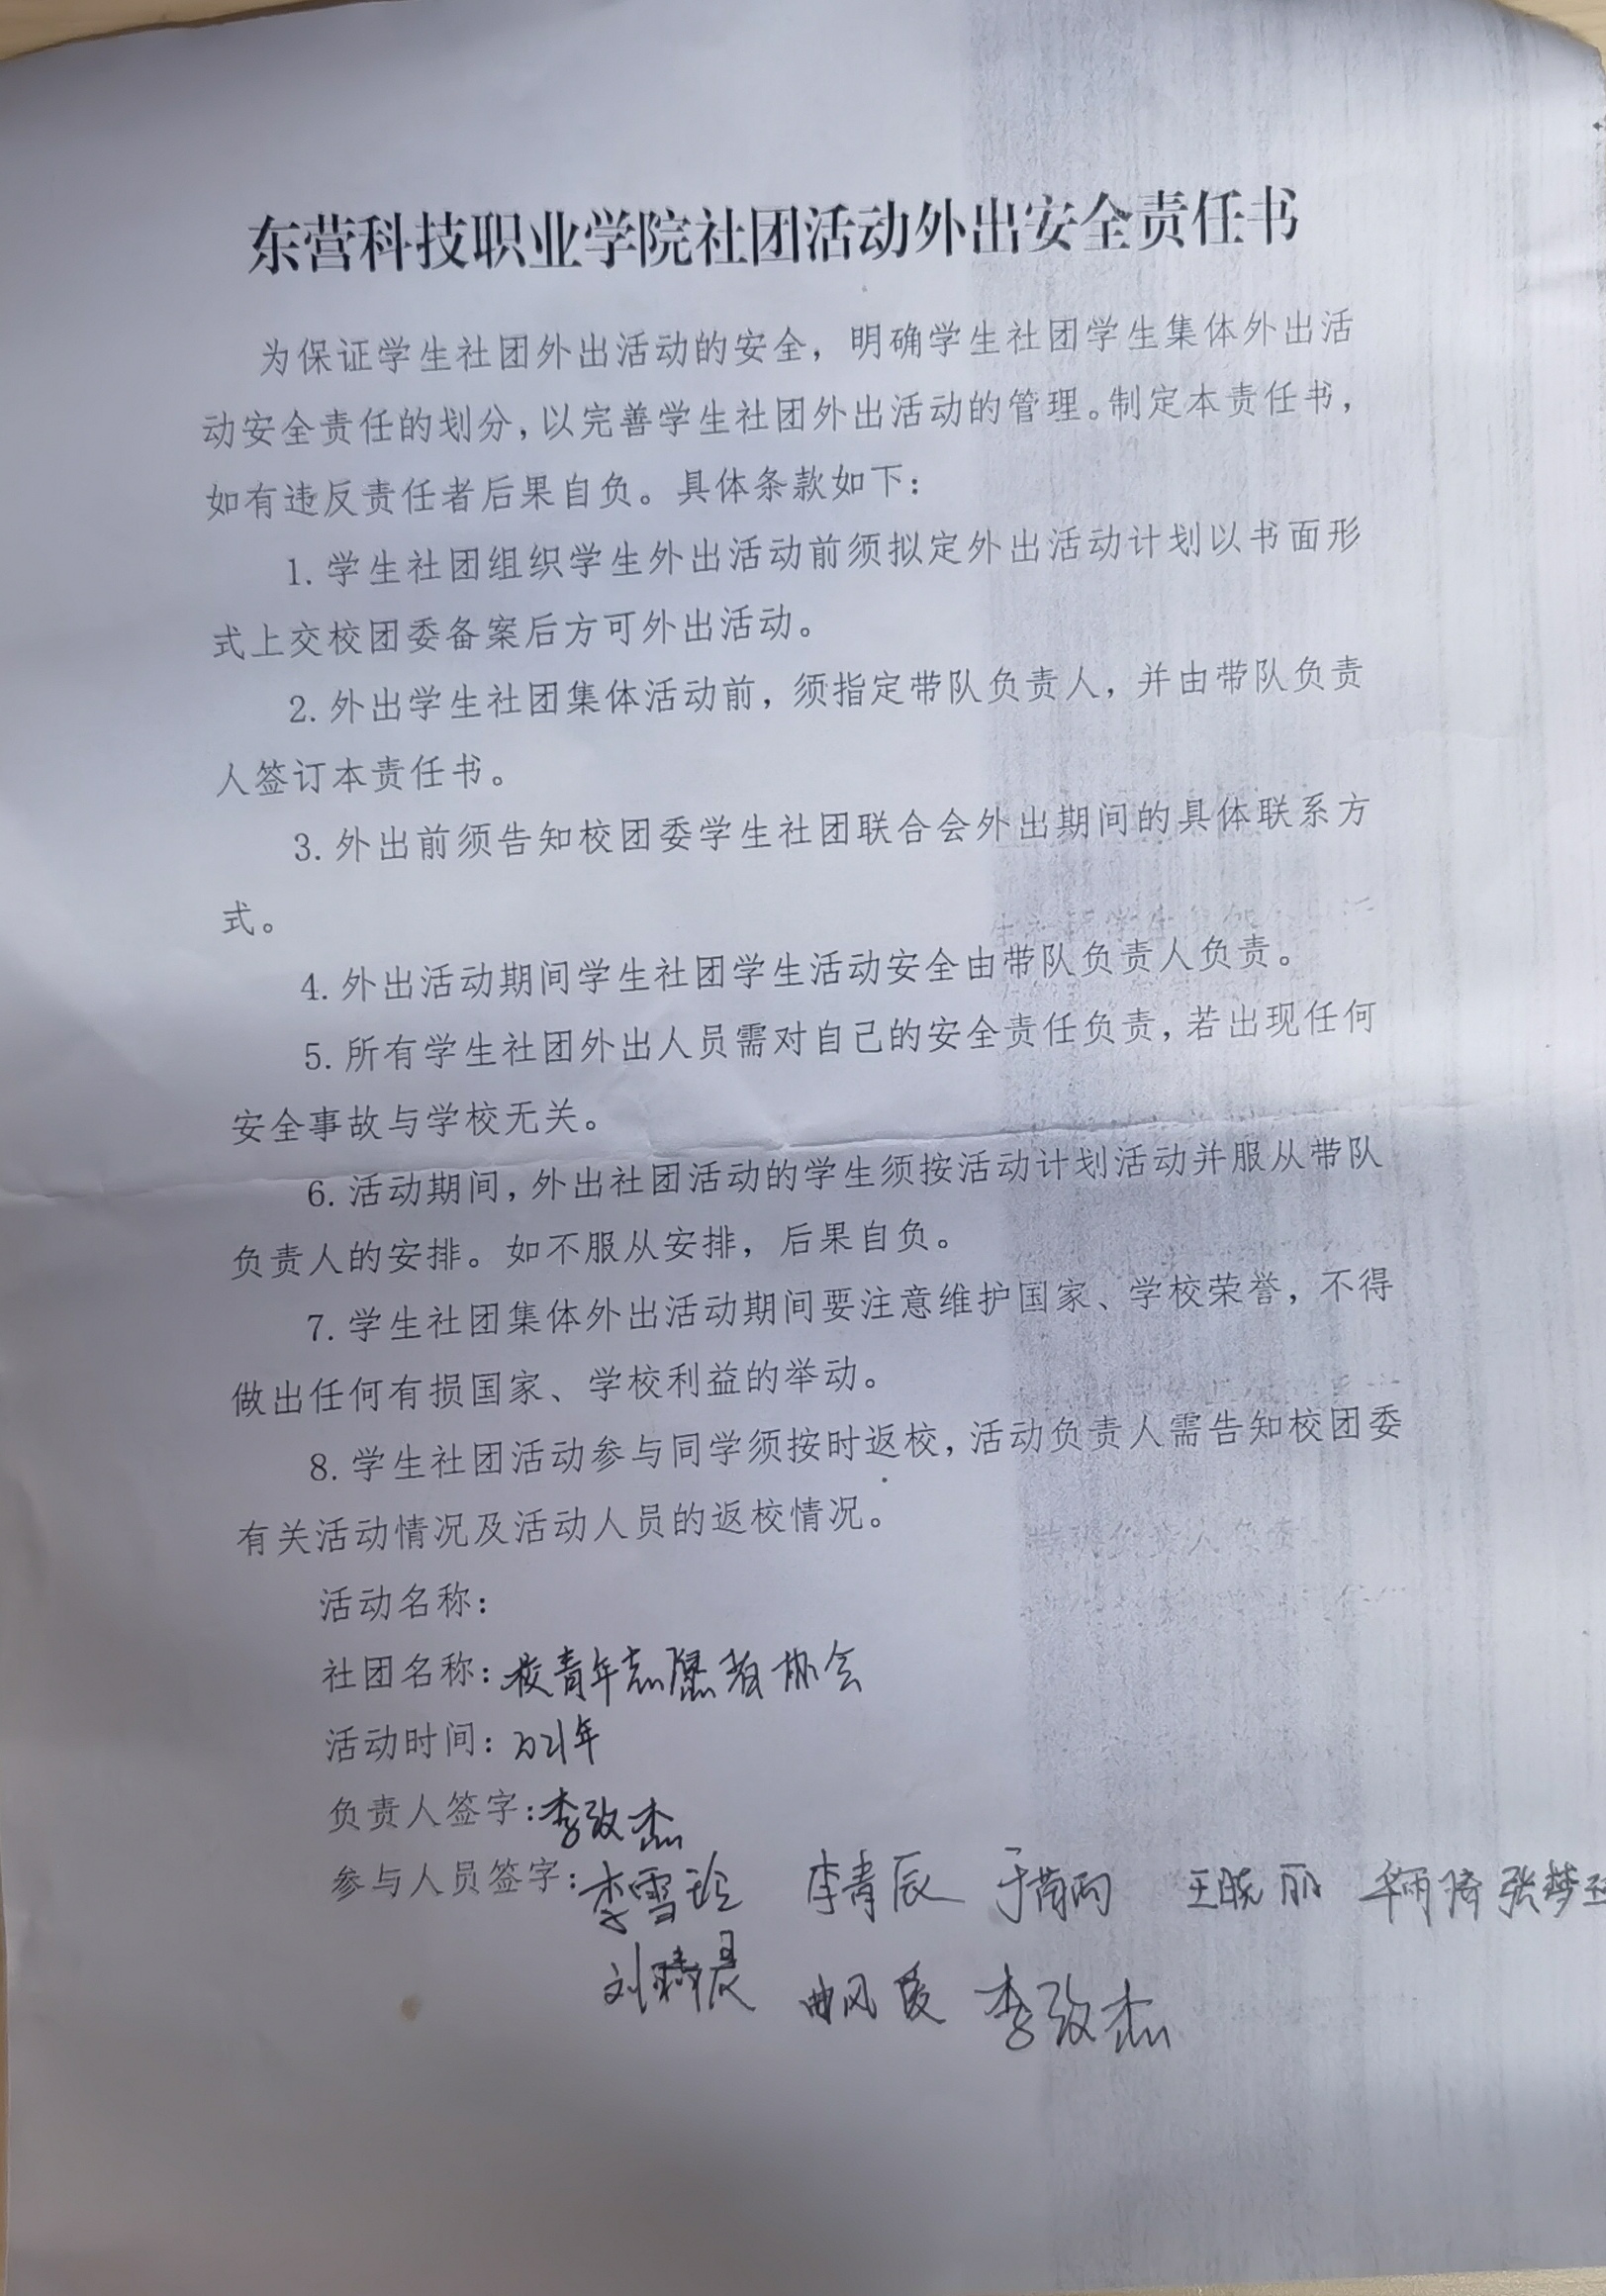 东营科技职业学院社团活动外出安全责任书
为保证学生社团外出活动的安全，明确学生社团学生集体外出活
动安全责任的划分，以完善学生社团外出活动的管理。制定本责任书，
如有违反责任者后果自负。具体条款如下：
1. 学生社团组织学生外出活动前须拟定外出活动计划以书面形
式上交校团委备案后方可外出活动。
2. 外出学生社团集体活动前，须指定带队负责人，并由带队负责
人签订本责任书。
3. 外出前须告知校团委学生社团联合会外出期间的具体联系方
式。
4. 外出活动期间学生社团学生活动安全由带队负责人负责。
5. 所有学生社团外出人员需对自己的安全责任负责，若出现任何
安全事故与学校无关。
6. 活动期间，外出社团活动的学生须按活动计划活动并服从带队
负责人的安排。如不服从安排，后果自负。
7. 学生社团集体外出活动期间要注意维护国家、学校荣誉，不得
做出任何有损国家、学校利益的举动。
8. 学生社团活动参与同学须按时返校，活动负责人需告知校团委
有关活动情况及活动人员的返校情况。
活动名称：
社团名称：校青年志愿者协会
活动时间：2021年
负责人签字：李政杰
参与人员签字：李雪玲 李青辰 王晓丽 张梦
刘晴晨 曲风爱 李政杰